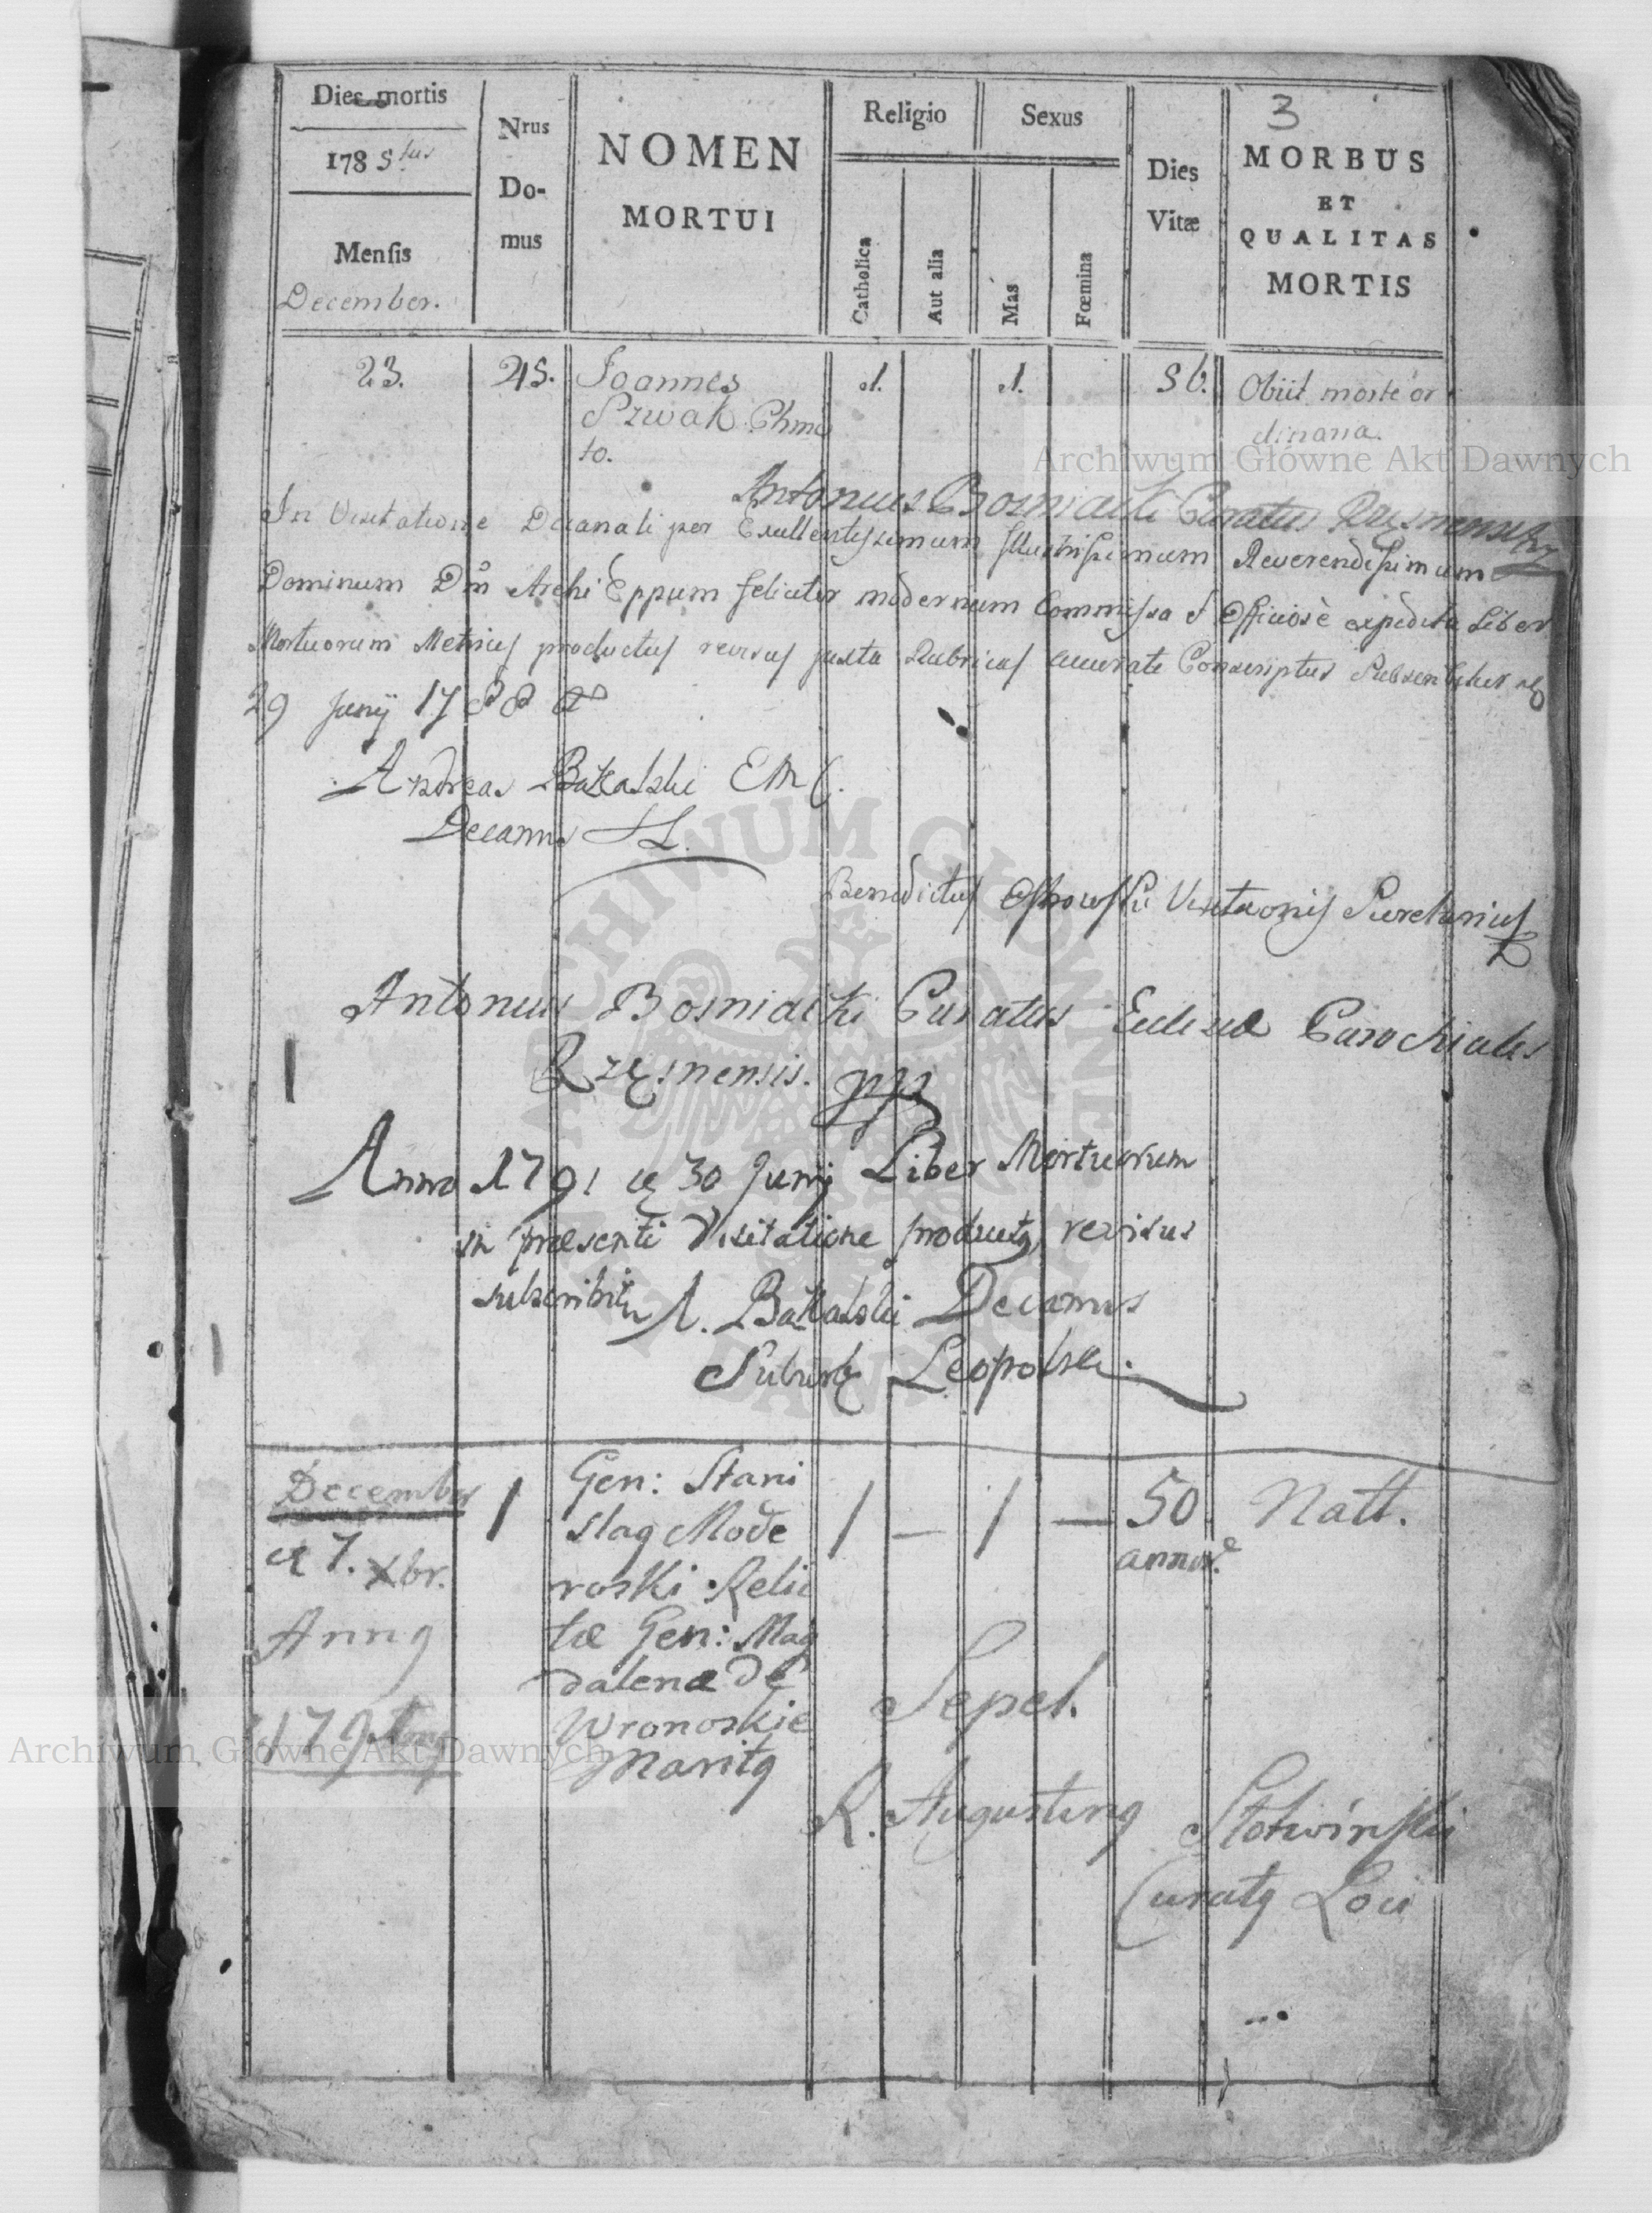 3
Dies mortis
178 5tus
Mensis
December.
Nrus
Do-
mus
NOMEN
MORTUI
Religio
Catholica
Aut alia
Sexus
Mas
Fœmina
Dies
Vitæ
MORBUS
ET
QUALITAS
MORTIS
23. 45. Joannes 1. 1. 56. Obiit morte or
Szwak Chmie dinaria.
to.
Antonius Bosniacki Curatus Rzęsnensis
In Visitatione Decanali per Excellentissimum Illustrissimum Reverendissimum
Dominum Dnm Archi Eppum feliciter modernum Commissa et Officiose expedita Liber
Mortuorum Metrices productus revisus juxta Rubricas accurate Conscriptus Subscribitur
29 Junij 1788
Andreas Bakalski
Decanus
Benedictus Visitaonis Secretarius
Antonius Bosniacki Curatus Eclesiæ Parochialis
Rzęsnensis. mp
Anno 1791 30 Junij Liber Mortuorum
in præsenti Visitatione productq revisus
subscribitur A. Bakalski Decanus
Suburb Leopolien.
December 1 Gen: Stani 1 — 1 — 50 Natt.
slaq Mode annor.
7. Xbr. roski Relic
Annq tæ Gen: Mag
dalenæ de Sepel.
Wronoskie
Maritq
R. Augustinq Słotwiński
Curatq Loci
Archiwum Główne Akt Dawnych
Archiwum Główne Akt Dawnych
ARCHIWUM GŁÓWNE AKT DAWNYCH